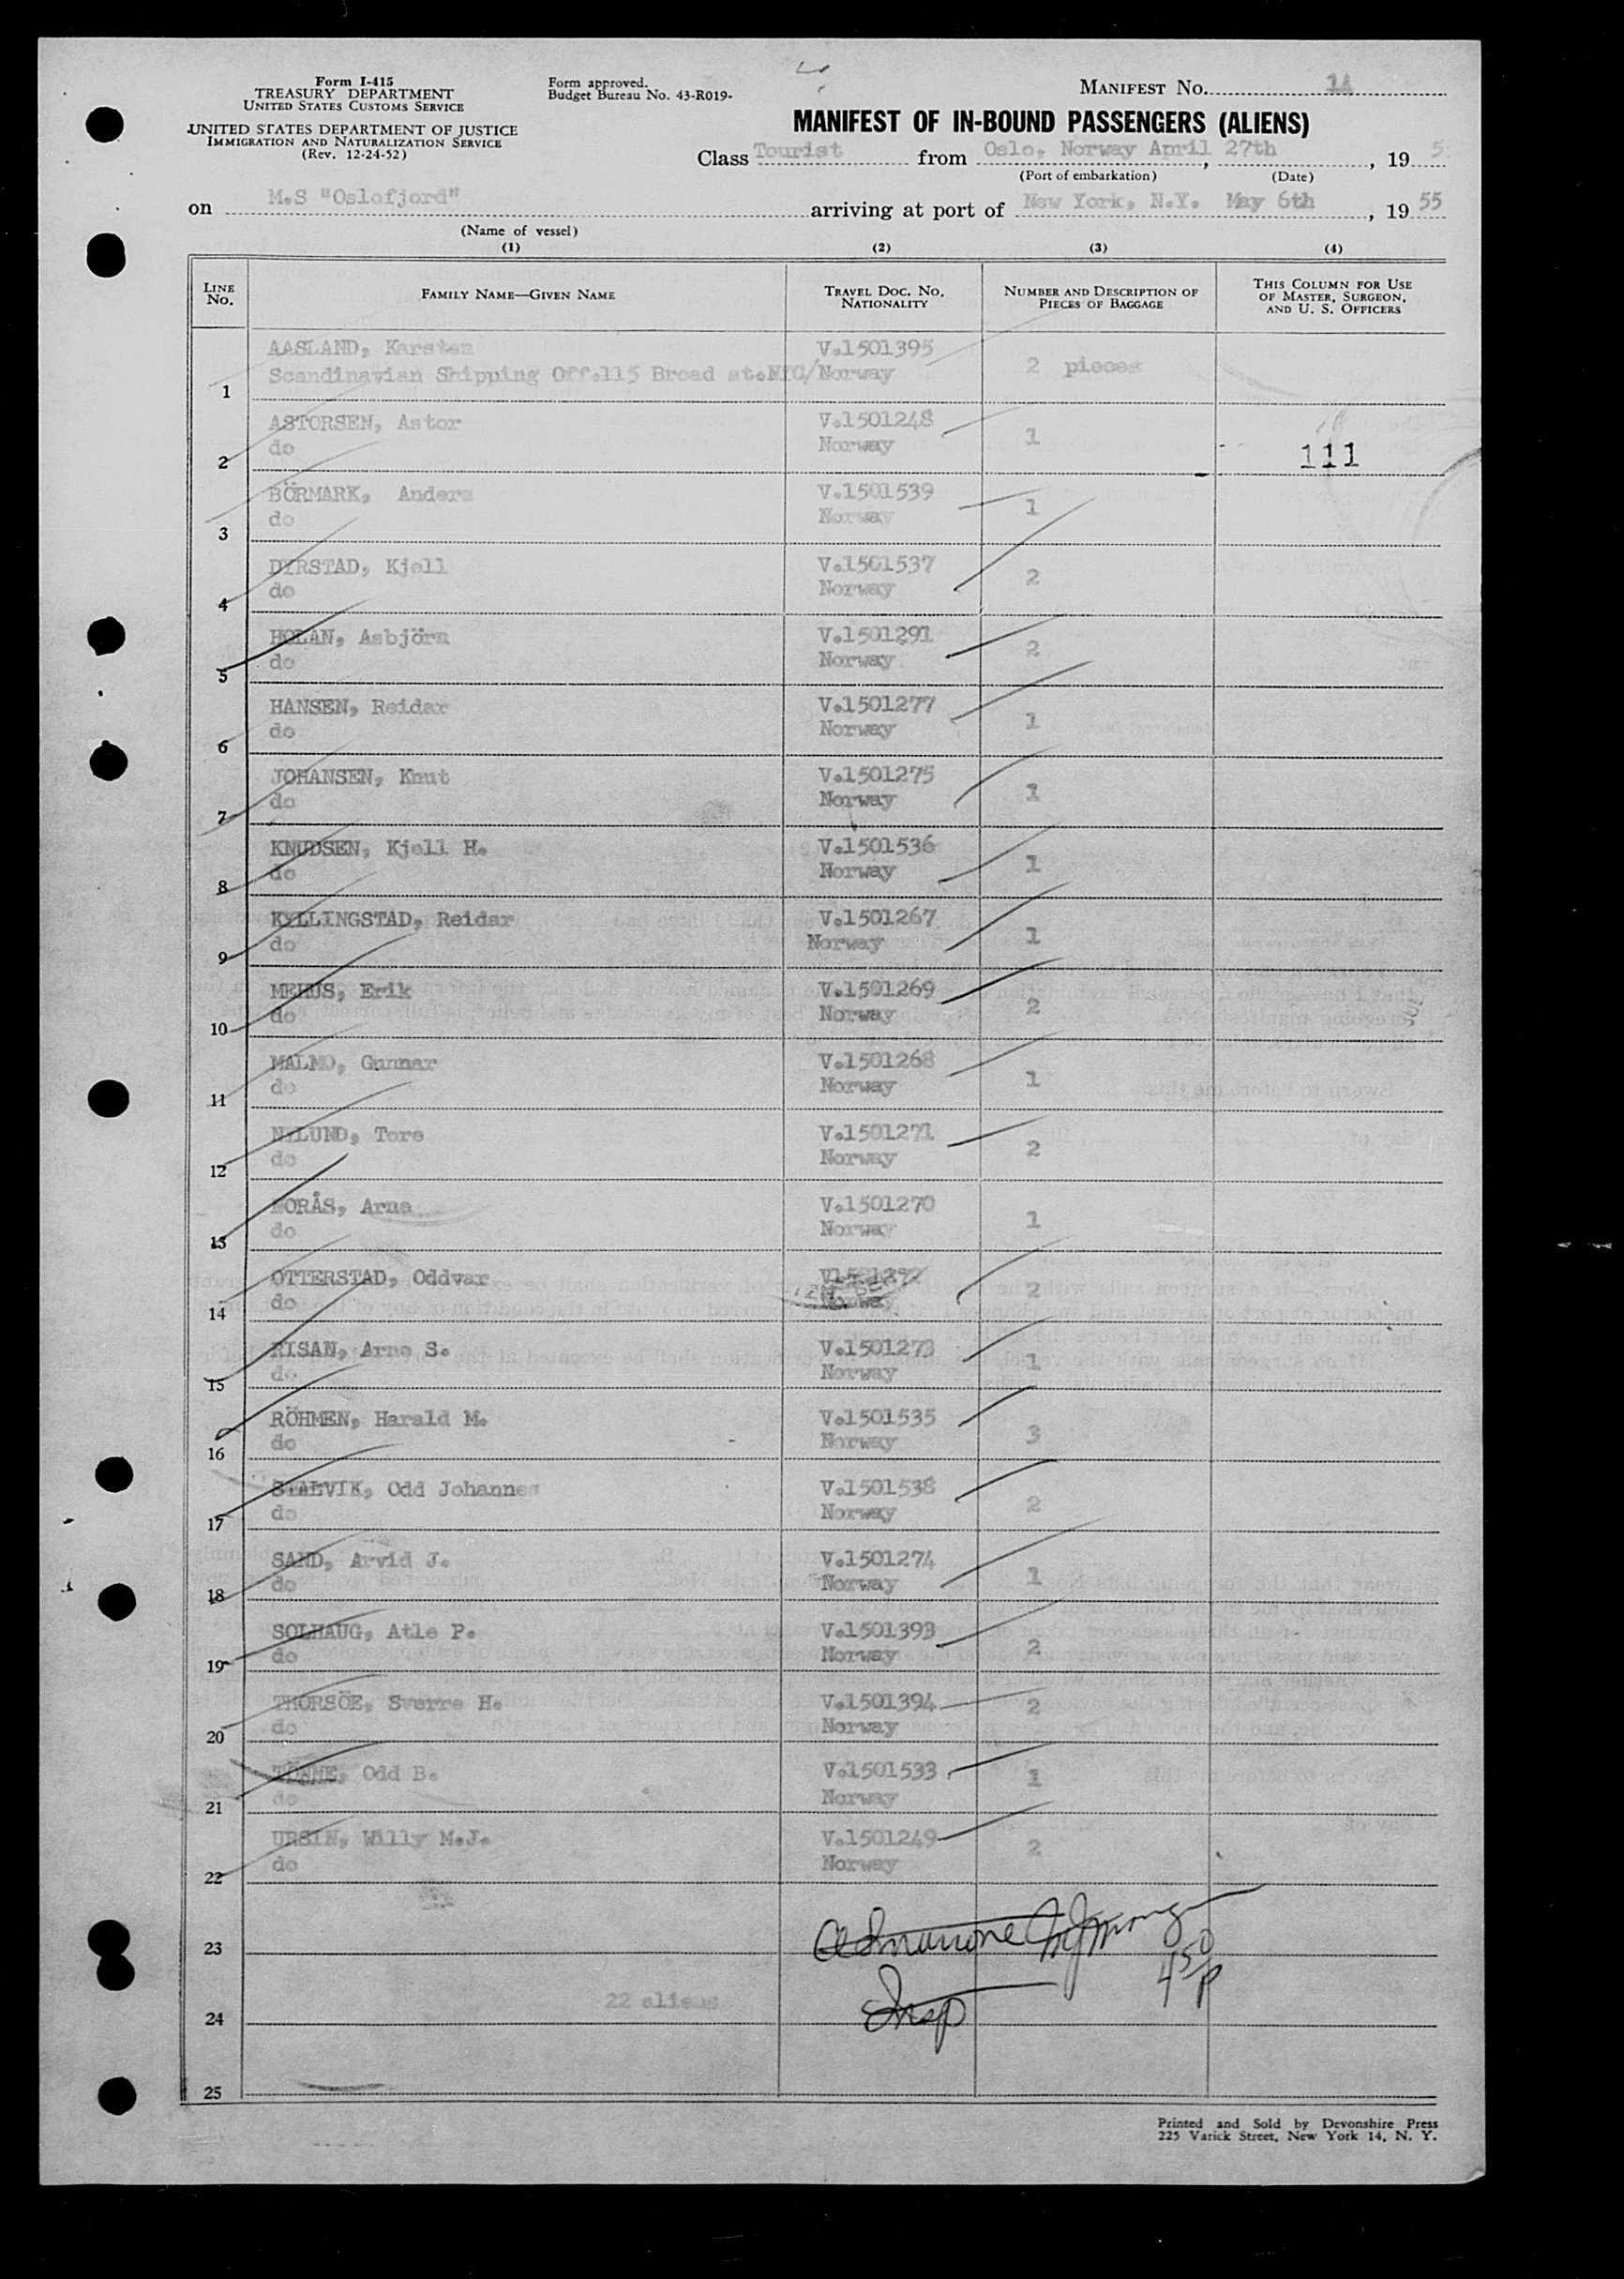 Form I-415
TREASURY DEPARTMENT
UNITED STATES CUSTOMS SERVICE
UNITED STATES DEPARTMENT OF JUSTICE
IMMIGRATION AND NATURALIZATION SERVICE
(Rev. 12-24-52)
Form approved.
Budget Bureau No. 43-R019-
MANIFEST No. 14
MANIFEST OF IN-BOUND PASSENGERS (ALIENS)
Class Tourist from Oslo, Norway April 27th, 19 5
(Port of embarkation) (Date)
on M.S "Oslofjord" arriving at port of New York, N.Y. May 6th, 19 55
(Name of vessel)
(1) (2) (3) (4)
LINE No. FAMILY NAME—GIVEN NAME TRAVEL DOC. NO. NATIONALITY NUMBER AND DESCRIPTION OF PIECES OF BAGGAGE THIS COLUMN FOR USE OF MASTER, SURGEON, AND U. S. OFFICERS
AASLAND, Karsten V.1501395
1 Scandinavian Shipping Off.115 Broad st.NYC/Norway 2 pieces
ASTORSEN, Astor V.1501248
2 do Norway 1 111
BÖRMARK, Anders V.1501539
3 do Norway 1
DYRSTAD, Kjell V.1501537
4 do Norway 2
HOLAN, Asbjörn V.1501291
5 do Norway 2
HANSEN, Reidar V.1501277
6 do Norway 1
JOHANSEN, Knut V.1501275
7 do Norway 1
KNUDSEN, Kjell H. V.1501536
8 do Norway 1
KYLLINGSTAD, Reidar V.1501267
9 do Norway 1
MEHUS, Erik V.1501269
10 do Norway 2
MALMO, Gunnar V.1501268
11 do Norway 1
NYLUND, Tore V.1501271
12 do Norway 2
NORÅS, Arne V.1501270
13 do Norway 1
OTTERSTAD, Oddvar
14 do Norway 2
RISAN, Arne S. V.1501273
15 do Norway 1
RÖHMEN, Harald M. V.1501535
16 do Norway 3
STALVIK, Odd Johannes V.1501538
17 do Norway 2
SAND, Arvid J. V.1501274
18 do Norway 1
SOLHAUG, Atle P. V.1501393
19 do Norway 2
THORSÖE, Sverre H. V.1501394
20 do Norway 2
TÖNNE, Odd B. V.1501533
21 do Norway 1
URSIN, Willy M.J. V.1501249
22 do Norway 2
23
450p
24 22 aliens Insp
25
Printed and Sold by Devonshire Press
225 Varick Street, New York 14, N. Y.